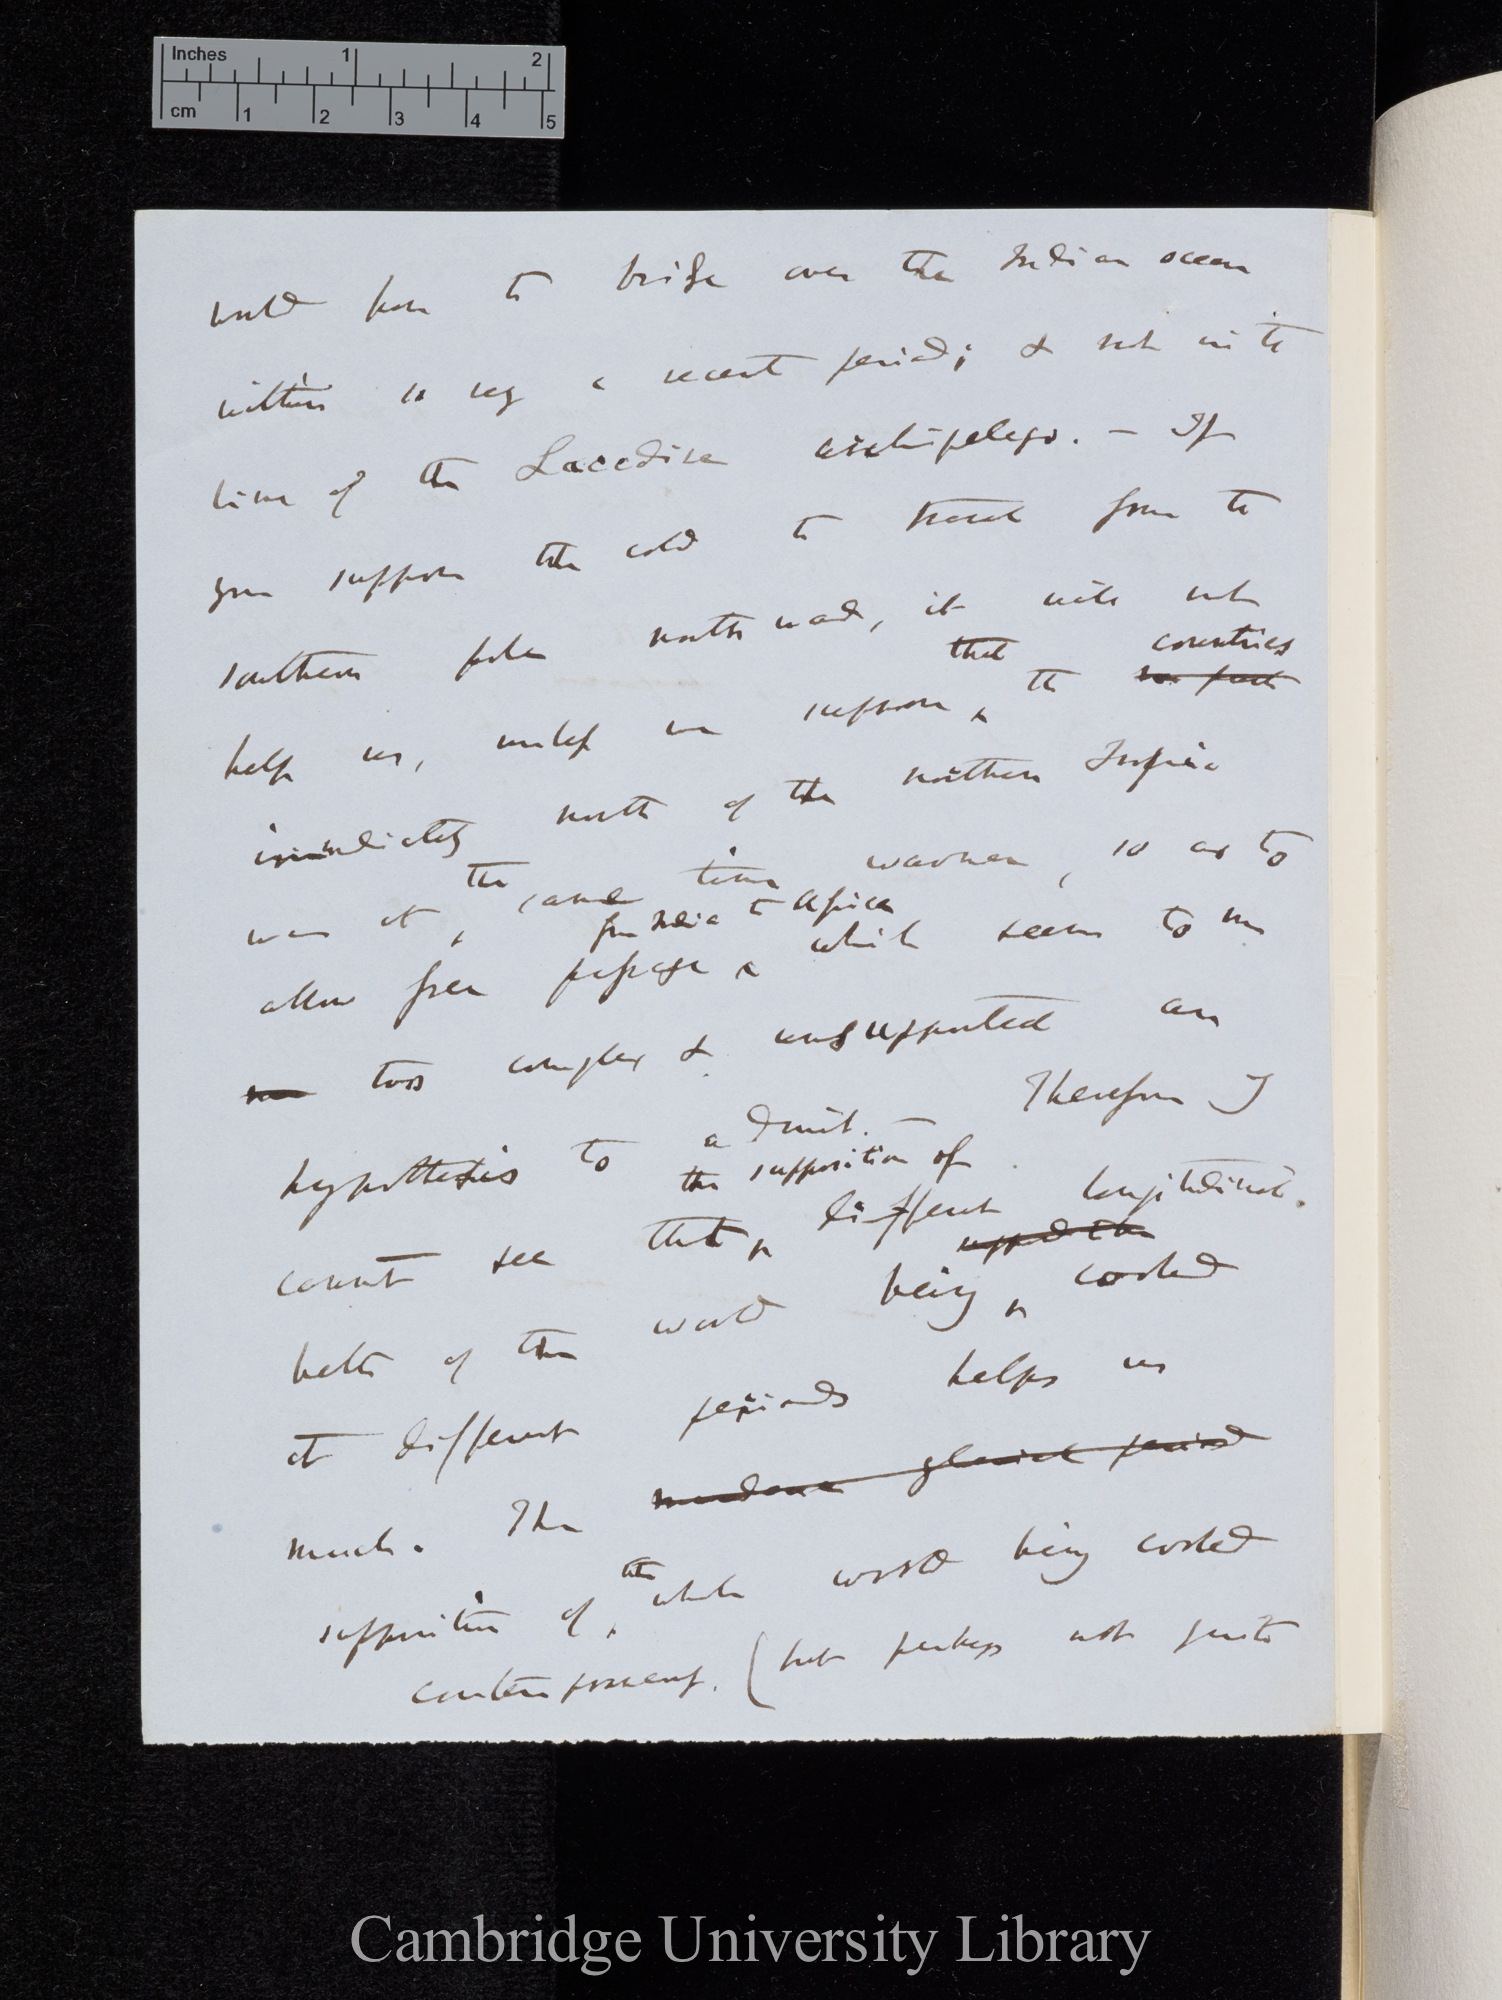 Inches 1 2
cm 1 2 3 4 5
would have to bridge over the Indian ocean
within so very a recent period; & not in the
line of the Laccdive archipelago. — If
you suppose the cold to travel from the
southern pole northward, it will not
help us, unless we suppose that the countries
immediately north of the northern Tropic
was at the same time warmer, so as to
allow free passage from India to Africa which seems to me
too complex & unsupported an
hypothesis to admit. — Therefore I
cannot see that the supposition of different longitudinal
belts of the world being cooled
at different periods helps us
much. The mundane glacial period
supposition of the whole world being cooled
contemporaneously (but perhaps not quite
Cambridge University Library